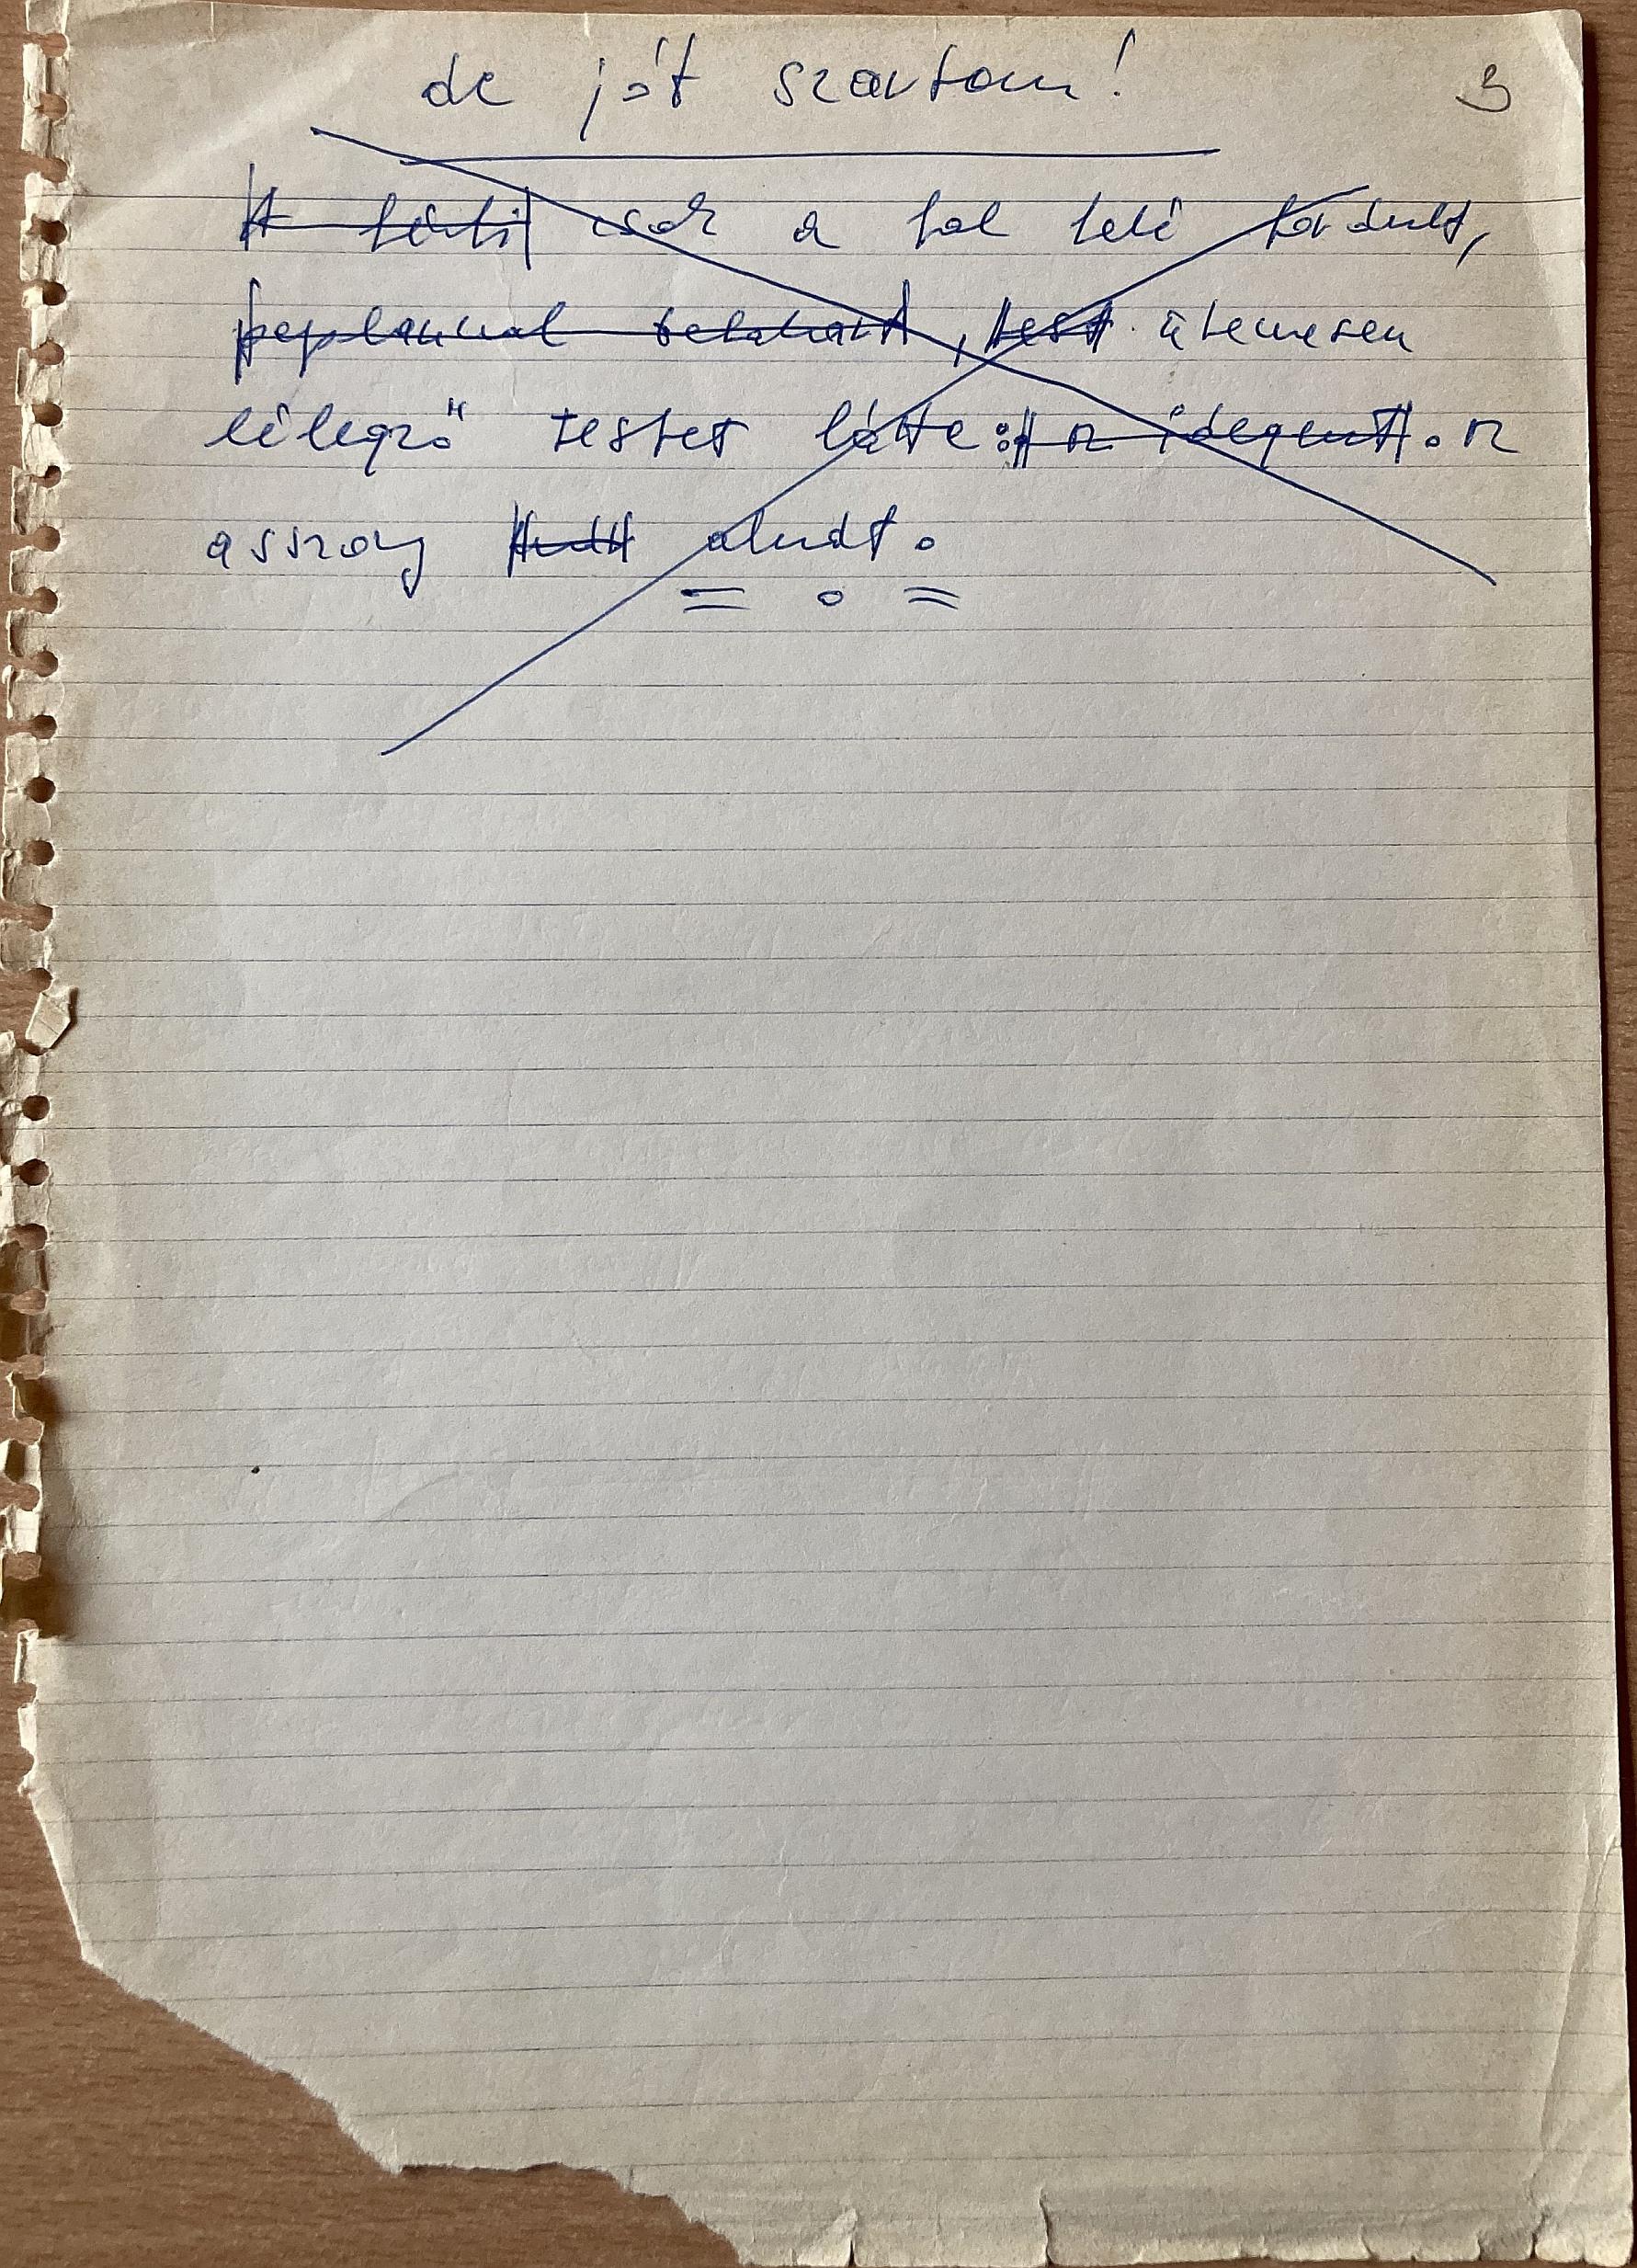 de jót szartam! 3
A férfi csak a fal felé fordult,
paplannal betakart, test ütemesen
lélegző testet látta: az idegent. Az
asszony aludt.
= . =